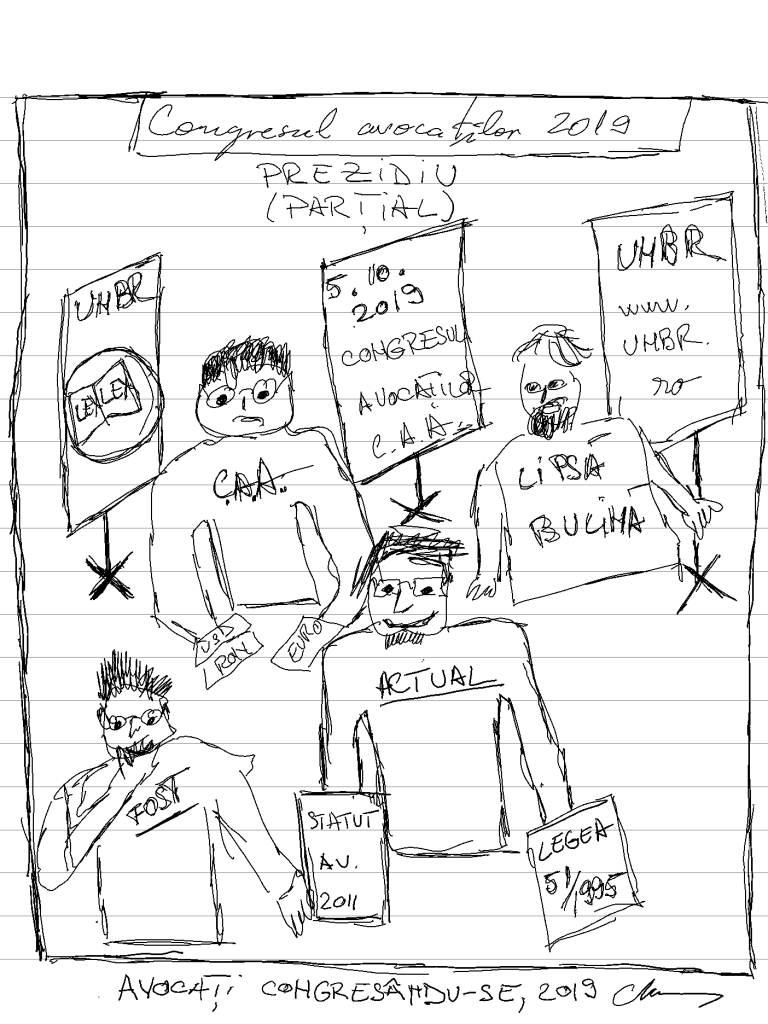 Congresul avocaților 2019
PREZIDIU
(PARȚIAL)
UNBR
LEX LEX
5.10.
2019
CONGRESUL
AVOCAȚILOR
C.A.A.
UNBR
www.
UNBR.
ro
C.A.A.
LIPSA
BULINA
USD
RON
EURO
ACTUAL
FOST
STATUT
AV.
2011
LEGEA
51/995
AVOCAȚI CONGRESÂNDU-SE, 2019